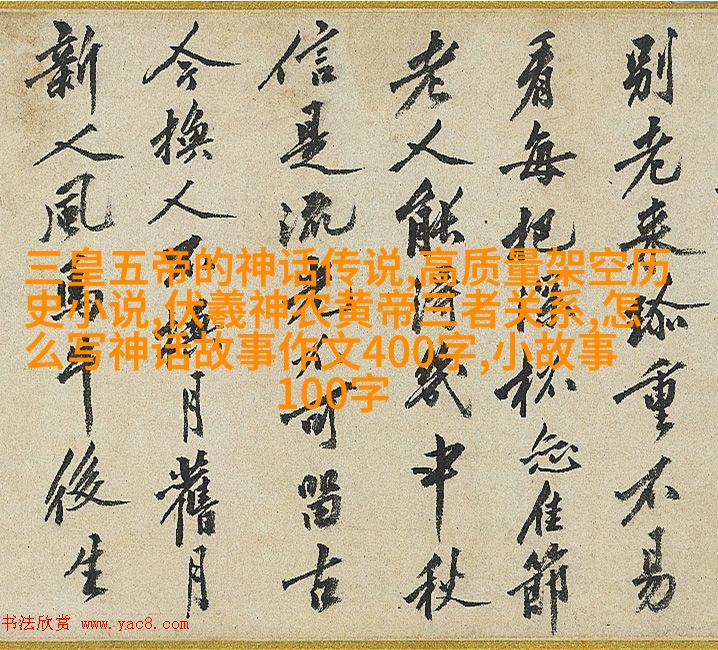 別老来弥重不易
看每把深杯恋佳節
老人能得幾中秋
信是流光可留古
今換人不換月舊月
新人風後生
三皇五帝的神话传说,高质量架空历
史小说,伏羲神农黄帝三者关系,怎
么写神话故事作文400字,小故事
100字
书法欣赏 www.yac8.com